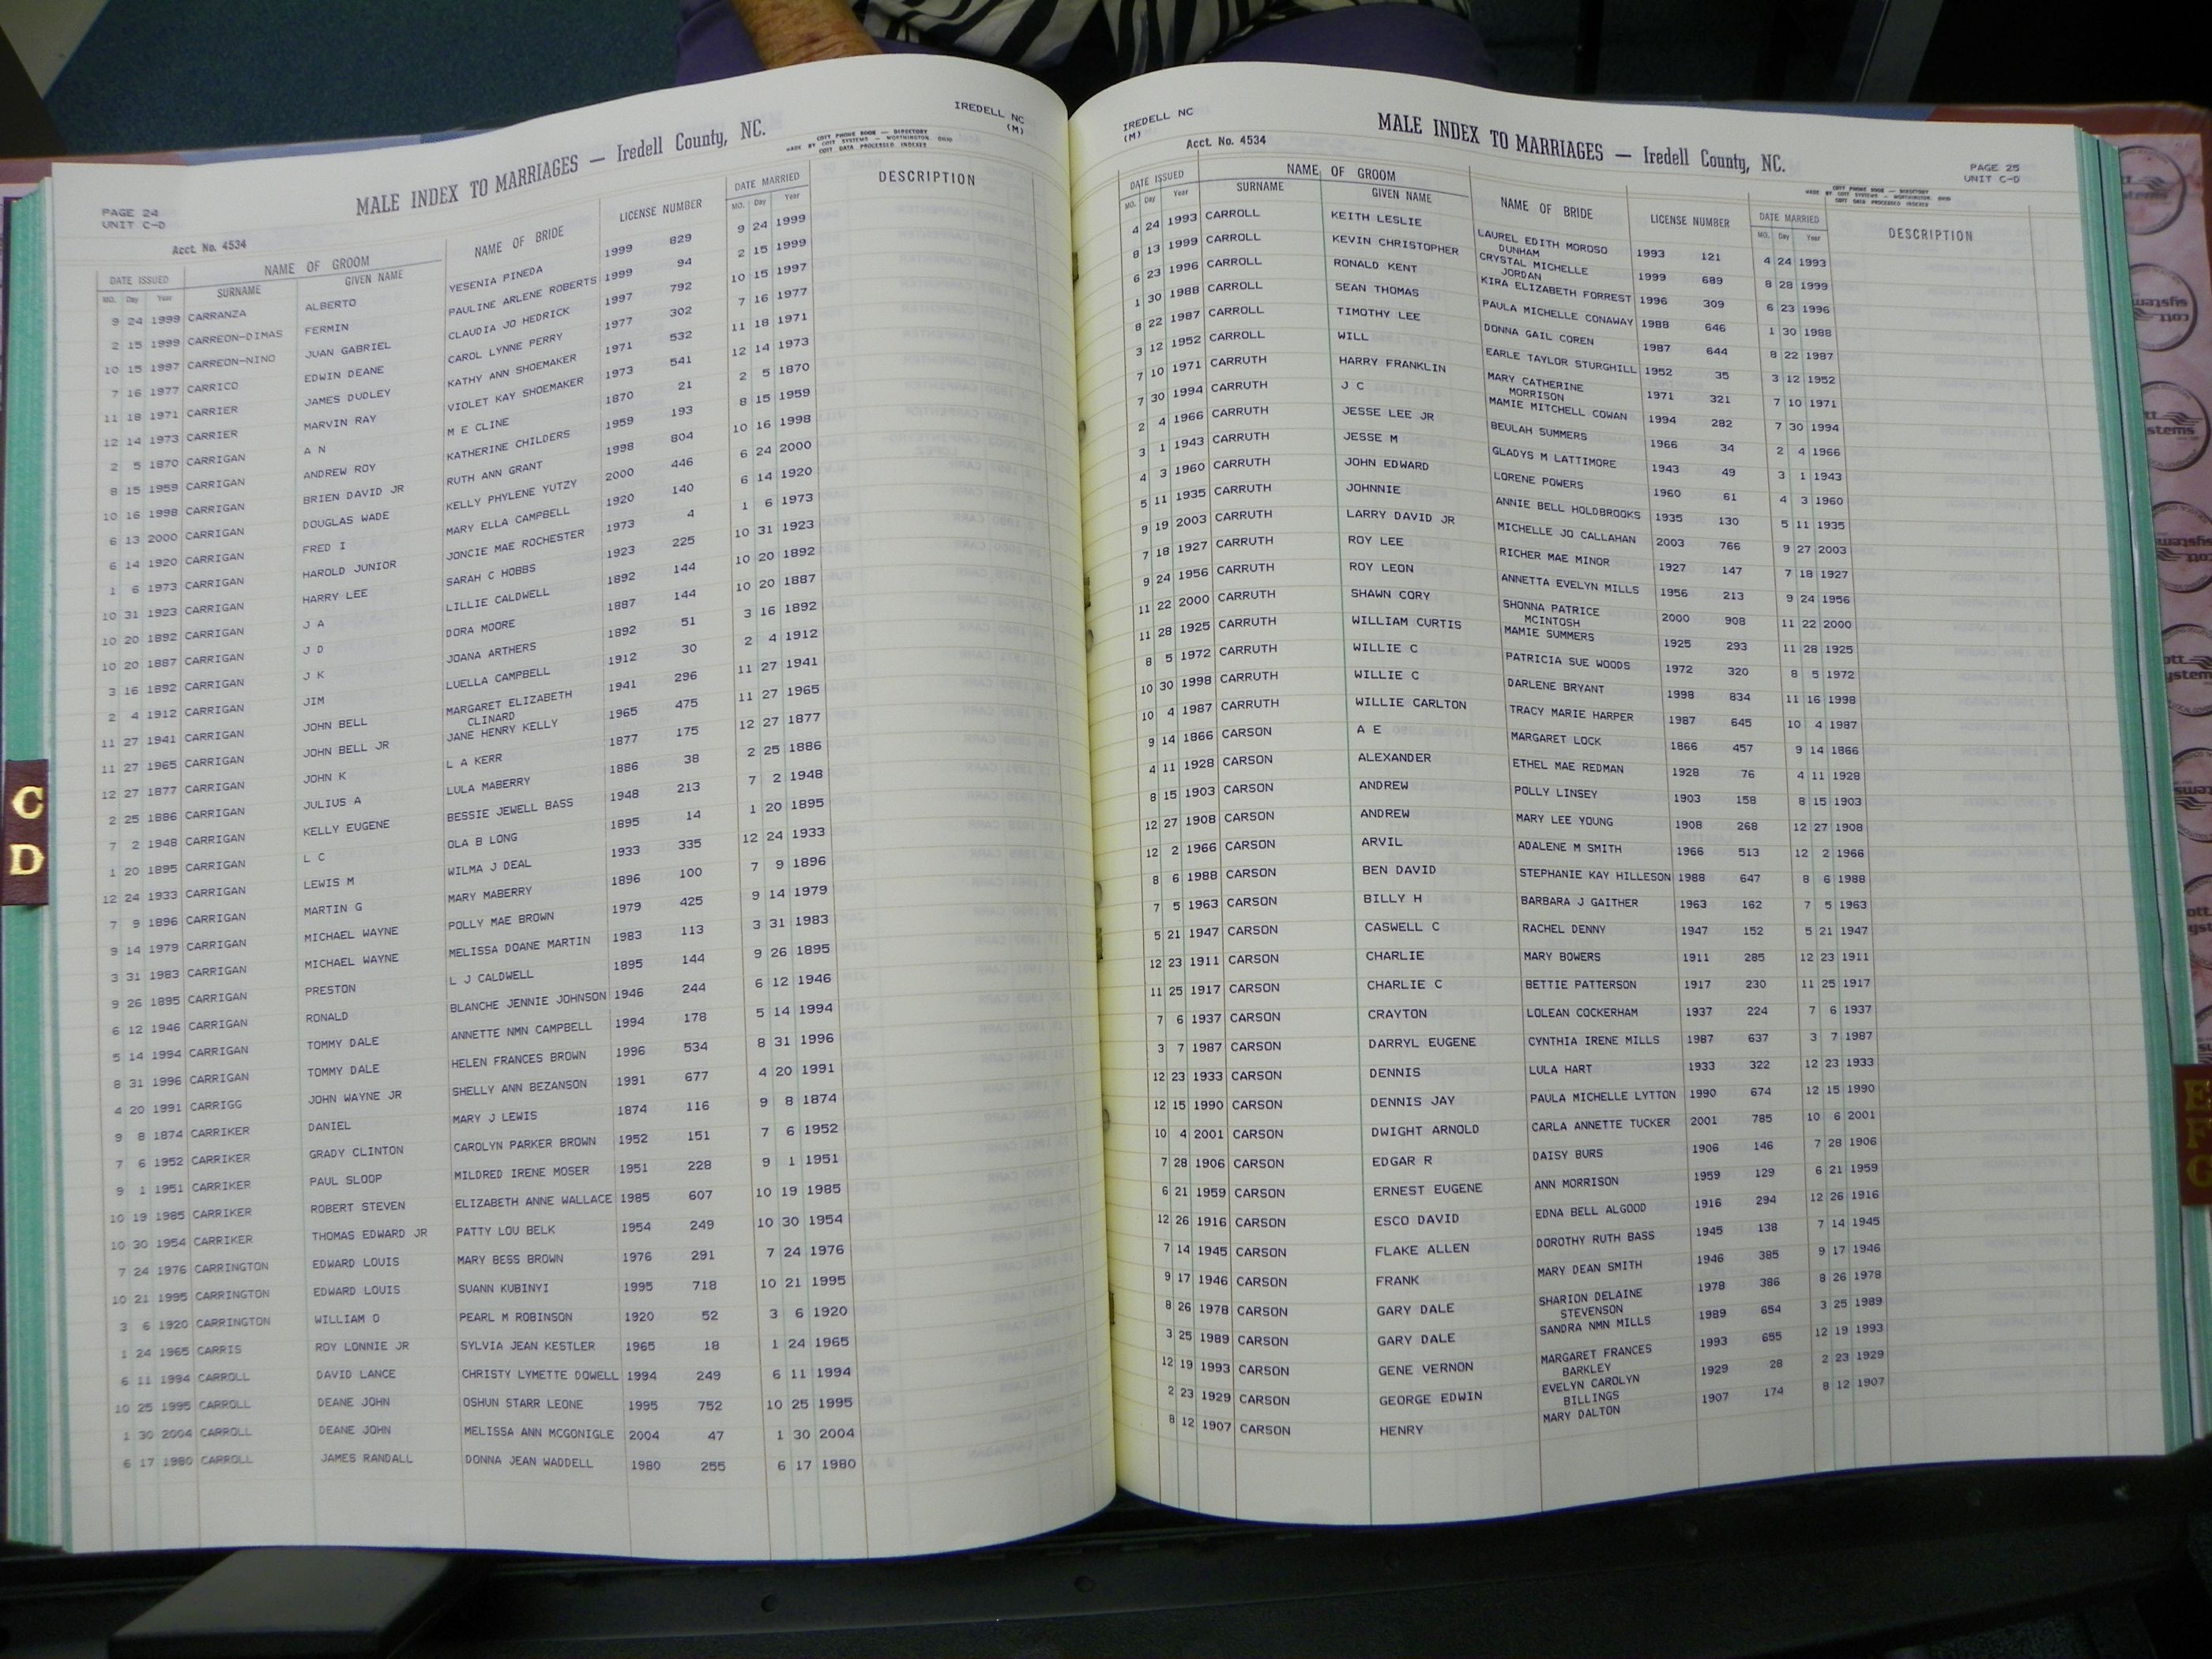 IREDELL NC
(M)
MALE INDEX TO MARRIAGES — Iredell County, NC.
COTT PHONE BOOK — DIRECTORY
MADE BY COTT SYSTEMS — WORTHINGTON OHIO
COTT DATA PROCESSED INDEXES
PAGE 24
UNIT C-D
Acct. No. 4534
DATE ISSUED NAME OF GROOM NAME OF BRIDE LICENSE NUMBER DATE MARRIED DESCRIPTION
MO. Day Year SURNAME GIVEN NAME MO. Day Year
9 24 1999 CARRANZA ALBERTO YESENIA PINEDA 1999 829 9 24 1999
2 15 1999 CARREON-DIMAS FERMIN PAULINE ARLENE ROBERTS 1999 94 2 15 1999
10 15 1997 CARREON-NINO JUAN GABRIEL CLAUDIA JO HEDRICK 1997 792 10 15 1997
7 16 1977 CARRICO EDWIN DEANE CAROL LYNNE PERRY 1977 302 7 16 1977
11 18 1971 CARRIER JAMES DUDLEY KATHY ANN SHOEMAKER 1971 532 11 18 1971
12 14 1973 CARRIER MARVIN RAY VIOLET KAY SHOEMAKER 1973 541 12 14 1973
2 5 1870 CARRIGAN A N M E CLINE 1870 21 2 5 1870
8 15 1959 CARRIGAN ANDREW ROY KATHERINE CHILDERS 1959 193 8 15 1959
10 16 1998 CARRIGAN BRIEN DAVID JR RUTH ANN GRANT 1998 804 10 16 1998
6 13 2000 CARRIGAN DOUGLAS WADE KELLY PHYLENE YUTZY 2000 446 6 24 2000
6 14 1920 CARRIGAN FRED I MARY ELLA CAMPBELL 1920 140 6 14 1920
1 6 1973 CARRIGAN HAROLD JUNIOR JONCIE MAE ROCHESTER 1973 4 1 6 1973
10 31 1923 CARRIGAN HARRY LEE SARAH C HOBBS 1923 225 10 31 1923
10 20 1892 CARRIGAN J A LILLIE CALDWELL 1892 144 10 20 1892
10 20 1887 CARRIGAN J D DORA MOORE 1887 144 10 20 1887
3 16 1892 CARRIGAN J K JOANA ARTHERS 1892 51 3 16 1892
2 4 1912 CARRIGAN JIM LUELLA CAMPBELL 1912 30 2 4 1912
11 27 1941 CARRIGAN JOHN BELL MARGARET ELIZABETH 1941 296 11 27 1941
CLINARD
11 27 1965 CARRIGAN JOHN BELL JR JANE HENRY KELLY 1965 475 11 27 1965
12 27 1877 CARRIGAN JOHN K L A KERR 1877 175 12 27 1877
2 25 1886 CARRIGAN JULIUS A LULA MABERRY 1886 38 2 25 1886
7 2 1948 CARRIGAN KELLY EUGENE BESSIE JEWELL BASS 1948 213 7 2 1948
1 20 1895 CARRIGAN L C OLA B LONG 1895 14 1 20 1895
12 24 1933 CARRIGAN LEWIS M WILMA J DEAL 1933 335 12 24 1933
7 9 1896 CARRIGAN MARTIN G MARY MABERRY 1896 100 7 9 1896
9 14 1979 CARRIGAN MICHAEL WAYNE POLLY MAE BROWN 1979 425 9 14 1979
3 31 1983 CARRIGAN MICHAEL WAYNE MELISSA DOANE MARTIN 1983 113 3 31 1983
9 26 1895 CARRIGAN PRESTON L J CALDWELL 1895 144 9 26 1895
6 12 1946 CARRIGAN RONALD BLANCHE JENNIE JOHNSON 1946 244 6 12 1946
5 14 1994 CARRIGAN TOMMY DALE ANNETTE NMN CAMPBELL 1994 178 5 14 1994
8 31 1996 CARRIGAN TOMMY DALE HELEN FRANCES BROWN 1996 534 8 31 1996
4 20 1991 CARRIGG JOHN WAYNE JR SHELLY ANN BEZANSON 1991 677 4 20 1991
9 8 1874 CARRIKER DANIEL MARY J LEWIS 1874 116 9 8 1874
7 6 1952 CARRIKER GRADY CLINTON CAROLYN PARKER BROWN 1952 151 7 6 1952
9 1 1951 CARRIKER PAUL SLOOP MILDRED IRENE MOSER 1951 228 9 1 1951
10 19 1985 CARRIKER ROBERT STEVEN ELIZABETH ANNE WALLACE 1985 607 10 19 1985
10 30 1954 CARRIKER THOMAS EDWARD JR PATTY LOU BELK 1954 249 10 30 1954
7 24 1976 CARRINGTON EDWARD LOUIS MARY BESS BROWN 1976 291 7 24 1976
10 21 1995 CARRINGTON EDWARD LOUIS SUANN KUBINYI 1995 718 10 21 1995
3 6 1920 CARRINGTON WILLIAM O PEARL M ROBINSON 1920 52 3 6 1920
1 24 1965 CARRIS ROY LONNIE JR SYLVIA JEAN KESTLER 1965 18 1 24 1965
6 11 1994 CARROLL DAVID LANCE CHRISTY LYMETTE DOWELL 1994 249 6 11 1994
10 25 1995 CARROLL DEANE JOHN OSHUN STARR LEONE 1995 752 10 25 1995
1 30 2004 CARROLL DEANE JOHN MELISSA ANN MCGONIGLE 2004 47 1 30 2004
6 17 1980 CARROLL JAMES RANDALL DONNA JEAN WADDELL 1980 255 6 17 1980
C
D
IREDELL NC
(M)
Acct. No. 4534
MALE INDEX TO MARRIAGES — Iredell County, NC.
PAGE 25
UNIT C-D
COTT PHONE BOOK — DIRECTORY
MADE BY COTT SYSTEMS — WORTHINGTON OHIO
COTT DATA PROCESSED INDEXES
DATE ISSUED NAME OF GROOM NAME OF BRIDE LICENSE NUMBER DATE MARRIED DESCRIPTION
MO. Day Year SURNAME GIVEN NAME MO. Day Year
4 24 1993 CARROLL KEITH LESLIE LAUREL EDITH MOROSO 1993 121 4 24 1993
DUNHAM
8 13 1999 CARROLL KEVIN CHRISTOPHER CRYSTAL MICHELLE 1999 689 8 28 1999
JORDAN
6 23 1996 CARROLL RONALD KENT KIRA ELIZABETH FORREST 1996 309 6 23 1996
1 30 1988 CARROLL SEAN THOMAS PAULA MICHELLE CONAWAY 1988 646 1 30 1988
8 22 1987 CARROLL TIMOTHY LEE DONNA GAIL COREN 1987 644 8 22 1987
3 12 1952 CARROLL WILL EARLE TAYLOR STURGHILL 1952 35 3 12 1952
7 10 1971 CARRUTH HARRY FRANKLIN MARY CATHERINE 1971 321 7 10 1971
MORRISON
7 30 1994 CARRUTH J C MAMIE MITCHELL COWAN 1994 282 7 30 1994
2 4 1966 CARRUTH JESSE LEE JR BEULAH SUMMERS 1966 34 2 4 1966
3 1 1943 CARRUTH JESSE M GLADYS M LATTIMORE 1943 49 3 1 1943
4 3 1960 CARRUTH JOHN EDWARD LORENE POWERS 1960 61 4 3 1960
5 11 1935 CARRUTH JOHNNIE ANNIE BELL HOLDBROOKS 1935 130 5 11 1935
9 19 2003 CARRUTH LARRY DAVID JR MICHELLE JO CALLAHAN 2003 766 9 27 2003
7 18 1927 CARRUTH ROY LEE RICHER MAE MINOR 1927 147 7 18 1927
9 24 1956 CARRUTH ROY LEON ANNETTA EVELYN MILLS 1956 213 9 24 1956
11 22 2000 CARRUTH SHAWN CORY SHONNA PATRICE 2000 908 11 22 2000
MCINTOSH
11 28 1925 CARRUTH WILLIAM CURTIS MAMIE SUMMERS 1925 293 11 28 1925
8 5 1972 CARRUTH WILLIE C PATRICIA SUE WOODS 1972 320 8 5 1972
10 30 1998 CARRUTH WILLIE C DARLENE BRYANT 1998 834 11 16 1998
10 4 1987 CARRUTH WILLIE CARLTON TRACY MARIE HARPER 1987 645 10 4 1987
9 14 1866 CARSON A E MARGARET LOCK 1866 457 9 14 1866
4 11 1928 CARSON ALEXANDER ETHEL MAE REDMAN 1928 76 4 11 1928
8 15 1903 CARSON ANDREW POLLY LINSEY 1903 158 8 15 1903
12 27 1908 CARSON ANDREW MARY LEE YOUNG 1908 268 12 27 1908
12 2 1966 CARSON ARVIL ADALENE M SMITH 1966 513 12 2 1966
8 6 1988 CARSON BEN DAVID STEPHANIE KAY HILLESON 1988 647 8 6 1988
7 5 1963 CARSON BILLY H BARBARA J GAITHER 1963 162 7 5 1963
5 21 1947 CARSON CASWELL C RACHEL DENNY 1947 152 5 21 1947
12 23 1911 CARSON CHARLIE MARY BOWERS 1911 285 12 23 1911
11 25 1917 CARSON CHARLIE C BETTIE PATTERSON 1917 230 11 25 1917
7 6 1937 CARSON CRAYTON LOLEAN COCKERHAM 1937 224 7 6 1937
3 7 1987 CARSON DARRYL EUGENE CYNTHIA IRENE MILLS 1987 637 3 7 1987
12 23 1933 CARSON DENNIS LULA HART 1933 322 12 23 1933
12 15 1990 CARSON DENNIS JAY PAULA MICHELLE LYTTON 1990 674 12 15 1990
10 4 2001 CARSON DWIGHT ARNOLD CARLA ANNETTE TUCKER 2001 785 10 6 2001
7 28 1906 CARSON EDGAR R DAISY BURS 1906 146 7 28 1906
6 21 1959 CARSON ERNEST EUGENE ANN MORRISON 1959 129 6 21 1959
12 26 1916 CARSON ESCO DAVID EDNA BELL ALGOOD 1916 294 12 26 1916
7 14 1945 CARSON FLAKE ALLEN DOROTHY RUTH BASS 1945 138 7 14 1945
9 17 1946 CARSON FRANK MARY DEAN SMITH 1946 385 9 17 1946
8 26 1978 CARSON GARY DALE SHARION DELAINE 1978 386 8 26 1978
STEVENSON
3 25 1989 CARSON GARY DALE SANDRA NMN MILLS 1989 654 3 25 1989
12 19 1993 CARSON GENE VERNON MARGARET FRANCES 1993 655 12 19 1993
BARKLEY
2 23 1929 CARSON GEORGE EDWIN EVELYN CAROLYN 1929 28 2 23 1929
BILLINGS
8 12 1907 CARSON HENRY MARY DALTON 1907 174 8 12 1907
cott
systems